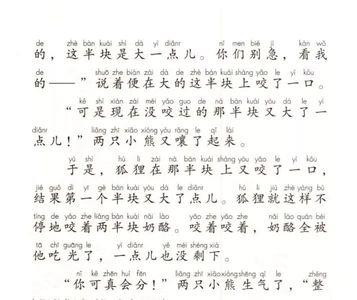 de zhè bàn kuài shì dà yì diǎnr nǐ men bié jí kàn wǒ
的，这半块是大一点儿。你们别急，看我
de shuō zhe biàn zài dà de zhè bàn kuài shàng yǎo le yì kǒu
的——”说着便在大的这半块上咬了一口。
kě shì xiàn zài méi yǎo guo de nà bàn kuài yòu dà le yì
“可是现在没咬过的那半块又大了一
diǎnr liǎng zhī xiǎo xióng yòu rǎng le qǐ lái
点儿！”两只小熊又嚷了起来。
yú shì hú li zài nà bàn kuài shàng yòu yǎo le yì kǒu
于是，狐狸在那半块上又咬了一口，
jié guǒ dì yī gè bàn kuài yòu dà le diǎnr hú li jiù zhè yàng bù
结果第一个半块又大了点儿。狐狸就这样不
tíng de yǎo zhe liǎng bàn kuài nǎi lào yǎo zhe yǎo zhe nǎi lào quán bèi
停地咬着两半块奶酪。咬着咬着，奶酪全被
tā chī guāng le yì diǎnr yě méi shèng xià
他吃光了，一点儿也没剩下。
nǐ kě zhēn huì fēn liǎng zhī xiǎo xióng shēng qì le zhěng
“你可真会分！”两只小熊生气了，“整